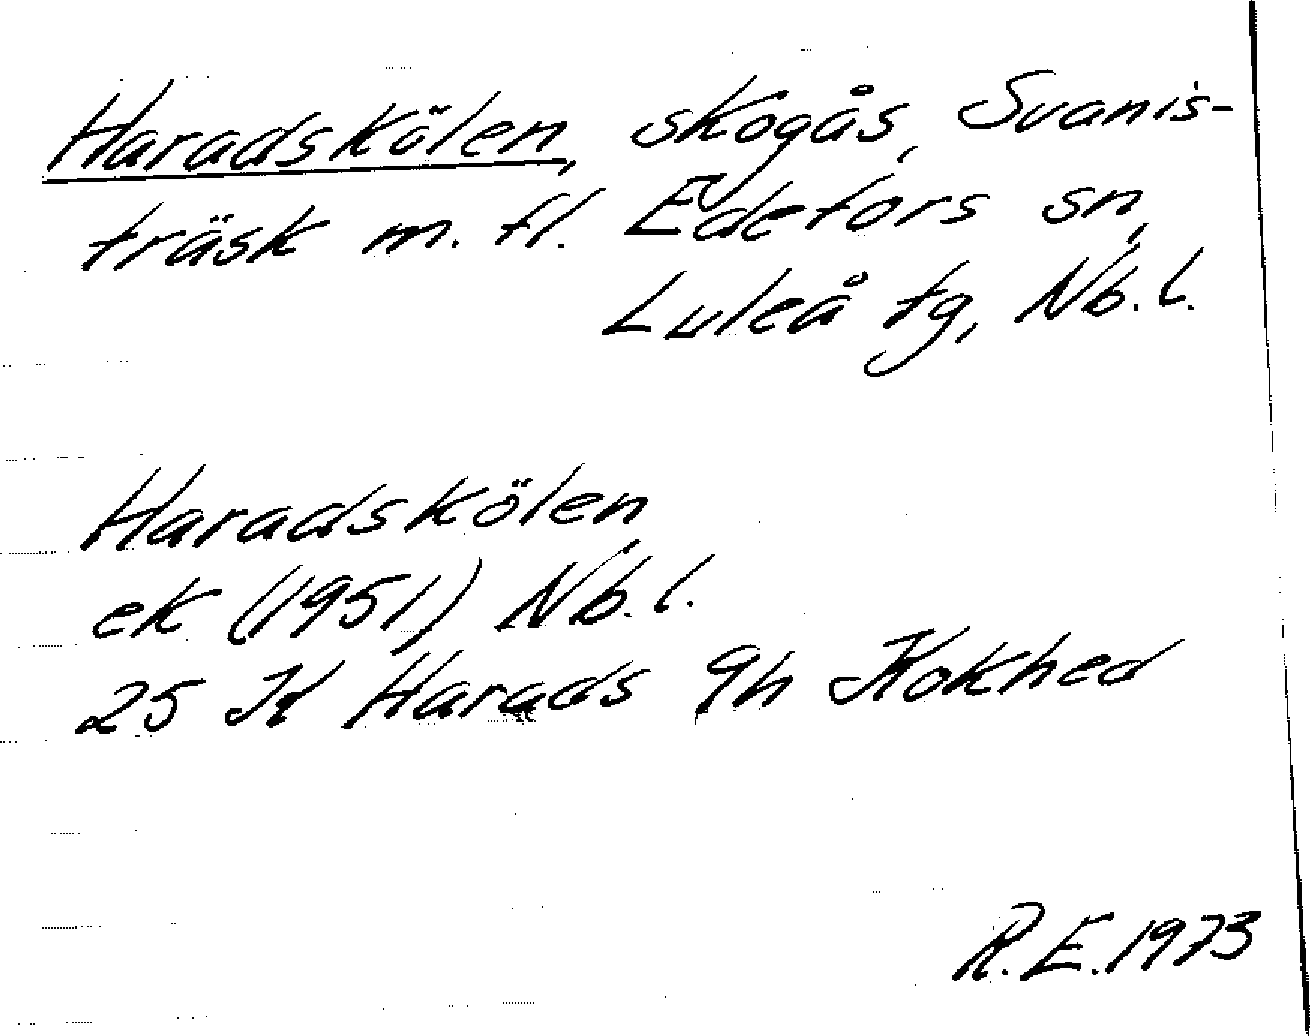 Haradskölen, skogås, Svanis-
träsk m. fl. Edefors sn,
Luleå tg, Nb. l.
Haradskölen
ek (1951) Nb. l.
25 K Harads 9h Kokhed
R. E. 1973